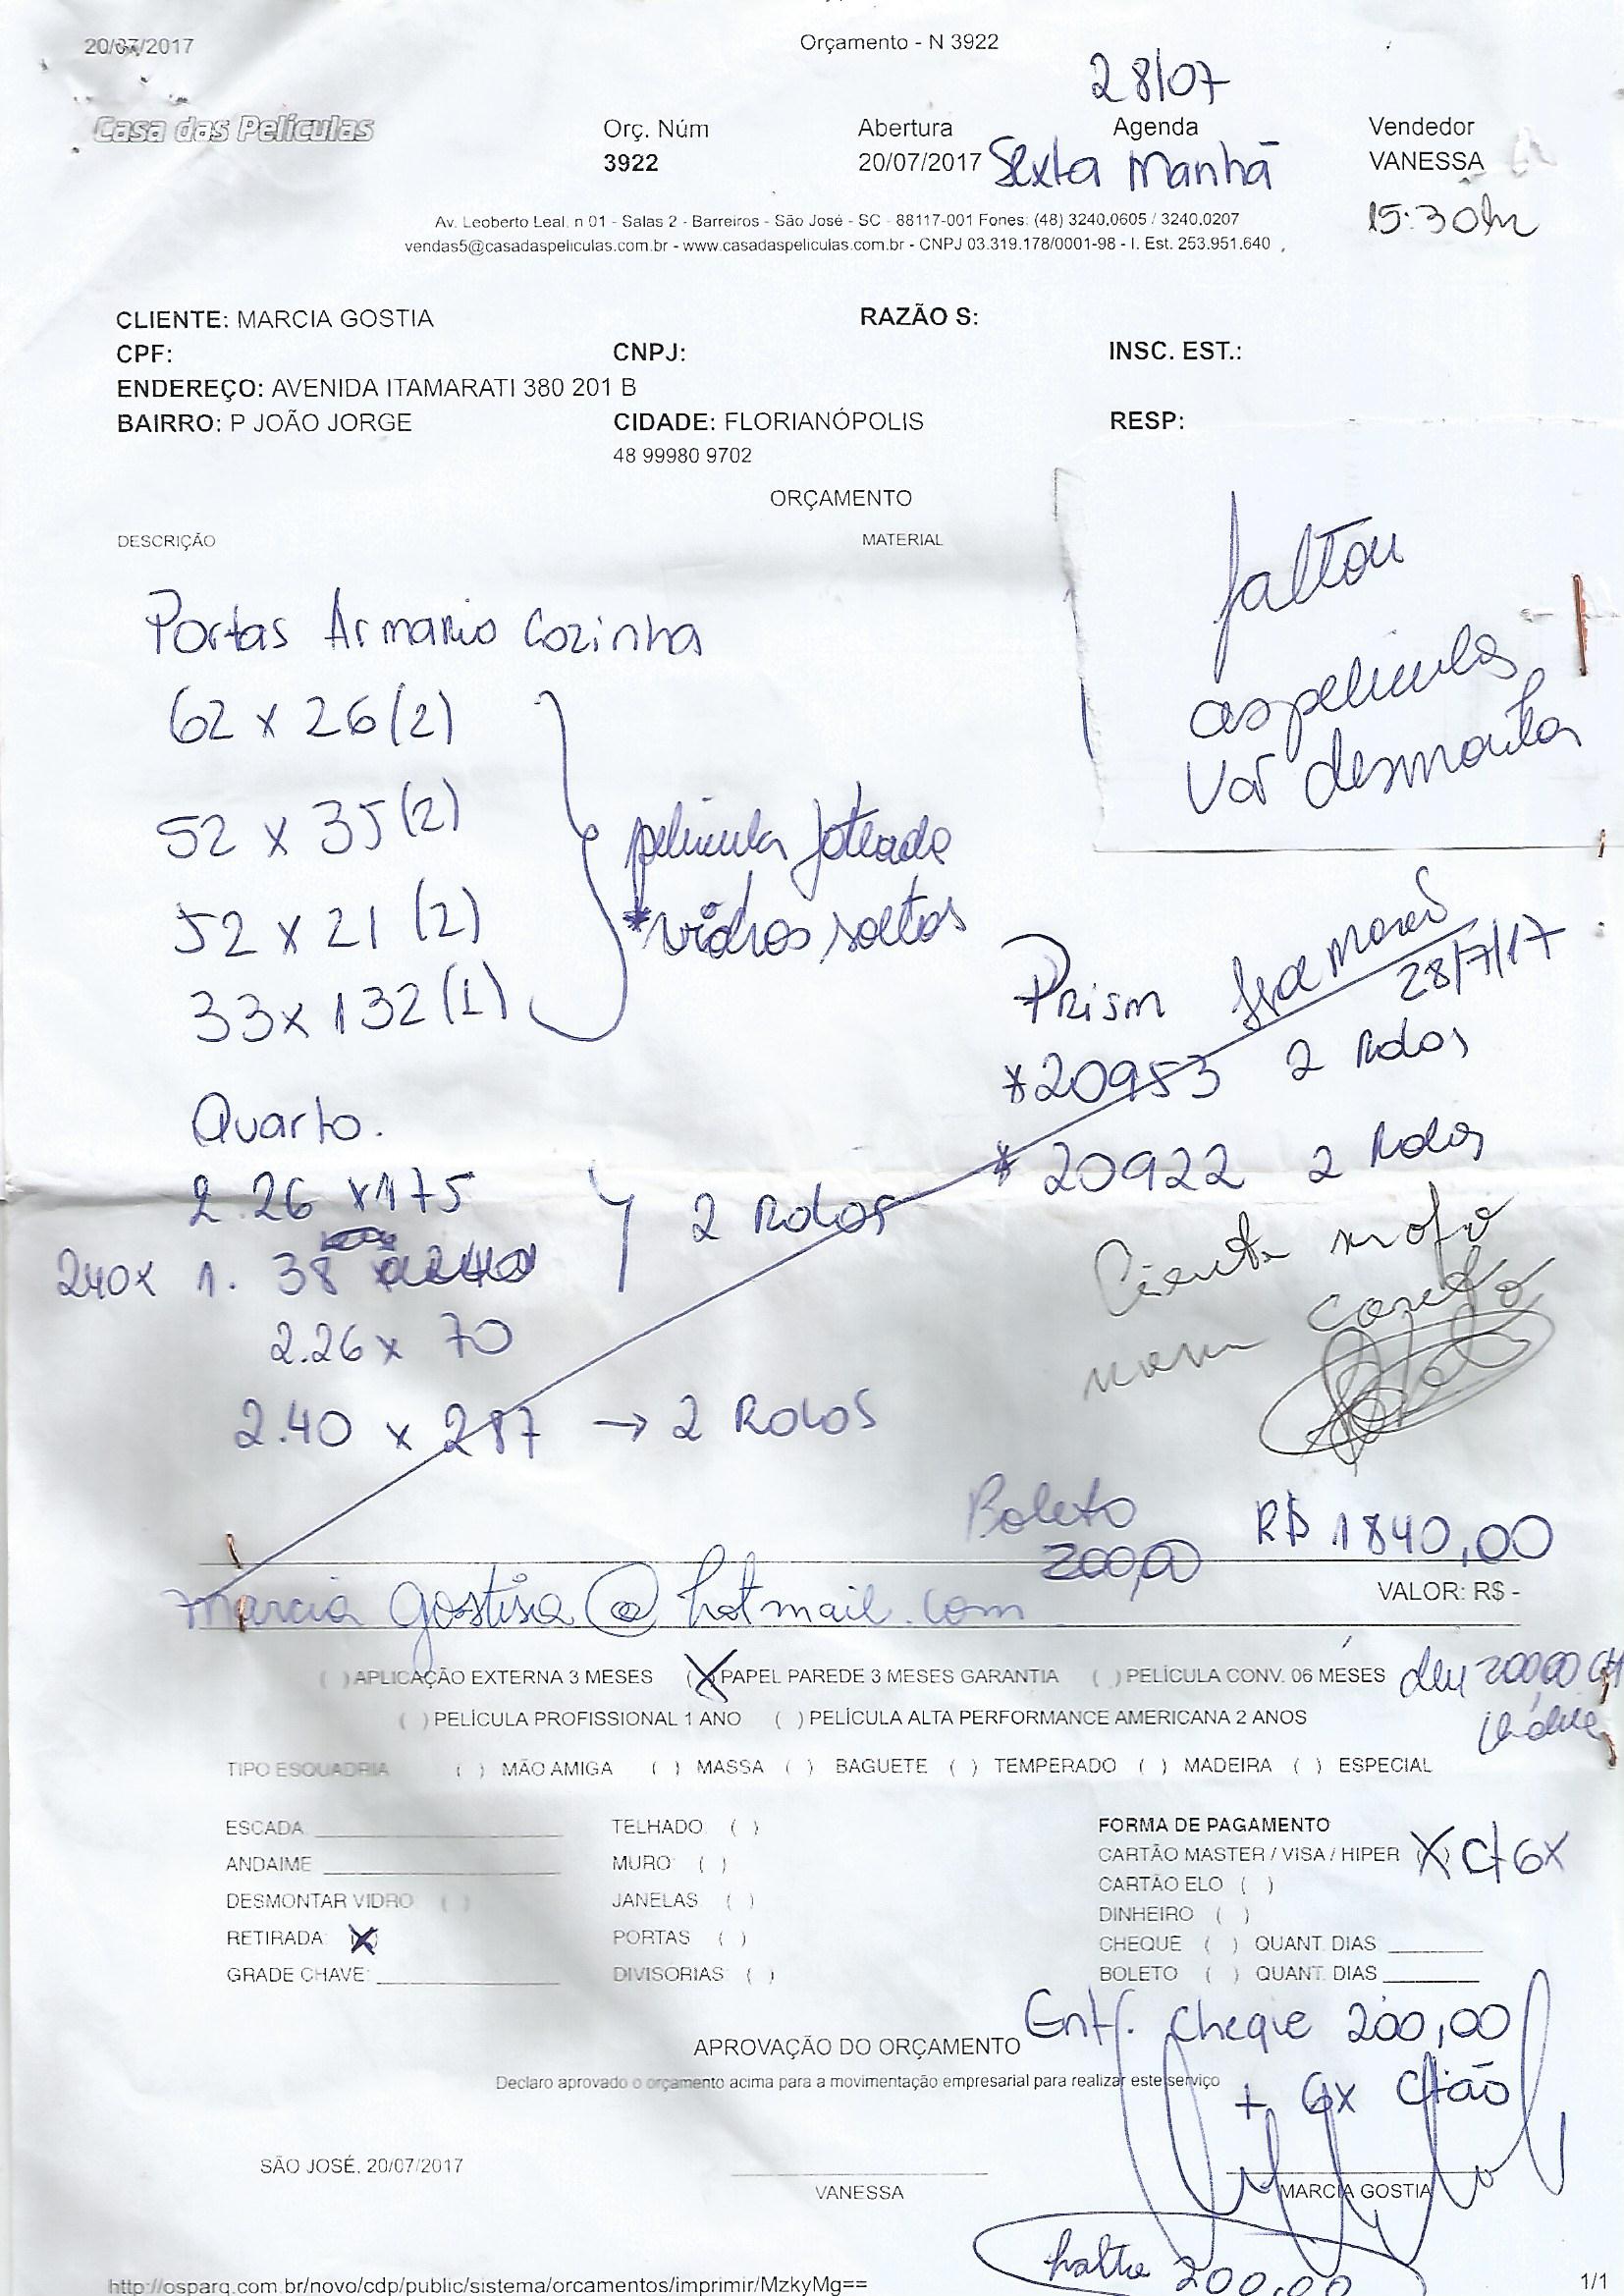 20/07/2017
Orçamento - N 3922
28/07
Casa das Películas
Orç. Núm
Abertura
Agenda
Vendedor
3922
20/07/2017
Sexta Manhã
VANESSA
15:30hr
Av. Leoberto Leal, n 01 - Salas 2 - Barreiros - São José - SC - 88117-001 Fones: (48) 3240.0605 / 3240.0207
vendas5@casadaspeliculas.com.br - www.casadaspeliculas.com.br - CNPJ 03.319.178/0001-98 - I. Est. 253.951.640
CLIENTE: MARCIA GOSTIA
RAZÃO S:
CPF:
CNPJ:
INSC. EST.:
ENDEREÇO: AVENIDA ITAMARATI 380 201 B
BAIRRO: P JOÃO JORGE
CIDADE: FLORIANÓPOLIS
RESP:
48 99980 9702
ORÇAMENTO
DESCRIÇÃO
MATERIAL
faltou
as peliculas
vai desmontar
Portas Armario Cozinha
62 x 26 (2)
52 x 35 (2)
52 x 21 (2)
33 x 132 (1)
pelicula jateada
*vidros soltos
Prism
28/7/17
*20953 2 Rolos
* 20922 2 Rolos
Quarto.
2.26 x 175
2 Rolos
240x 1.38
2.26 x 70
2.40 x 287 → 2 Rolos
Ciente mofo
Boleto
200,00
R$ 1840,00
VALOR: R$ -
marcia gostisa@hotmail.com
( ) APLICAÇÃO EXTERNA 3 MESES (X) PAPEL PAREDE 3 MESES GARANTIA ( ) PELÍCULA CONV. 06 MESES
deu 200,00
( ) PELÍCULA PROFISSIONAL 1 ANO ( ) PELÍCULA ALTA PERFORMANCE AMERICANA 2 ANOS
TIPO ESQUADRIA ( ) MÃO AMIGA ( ) MASSA ( ) BAGUETE ( ) TEMPERADO ( ) MADEIRA ( ) ESPECIAL
ESCADA
TELHADO ( )
FORMA DE PAGAMENTO
ANDAIME
MURO ( )
CARTÃO MASTER / VISA / HIPER (X) Ct 6x
DESMONTAR VIDRO ( )
JANELAS ( )
CARTÃO ELO ( )
RETIRADA: (X)
PORTAS ( )
DINHEIRO ( )
CHEQUE ( ) QUANT. DIAS
GRADE CHAVE:
DIVISORIAS: ( )
BOLETO ( ) QUANT. DIAS
Ent. cheque 200,00
+ 6x Ctão
APROVAÇÃO DO ORÇAMENTO
Declaro aprovado o orçamento acima para a movimentação empresarial para realizar este serviço
SÃO JOSÉ, 20/07/2017
VANESSA
MARCIA GOSTIA
falta 200,00
http://osparq.com.br/novo/cdp/public/sistema/orcamentos/imprimir/MzkyMg==
1/1